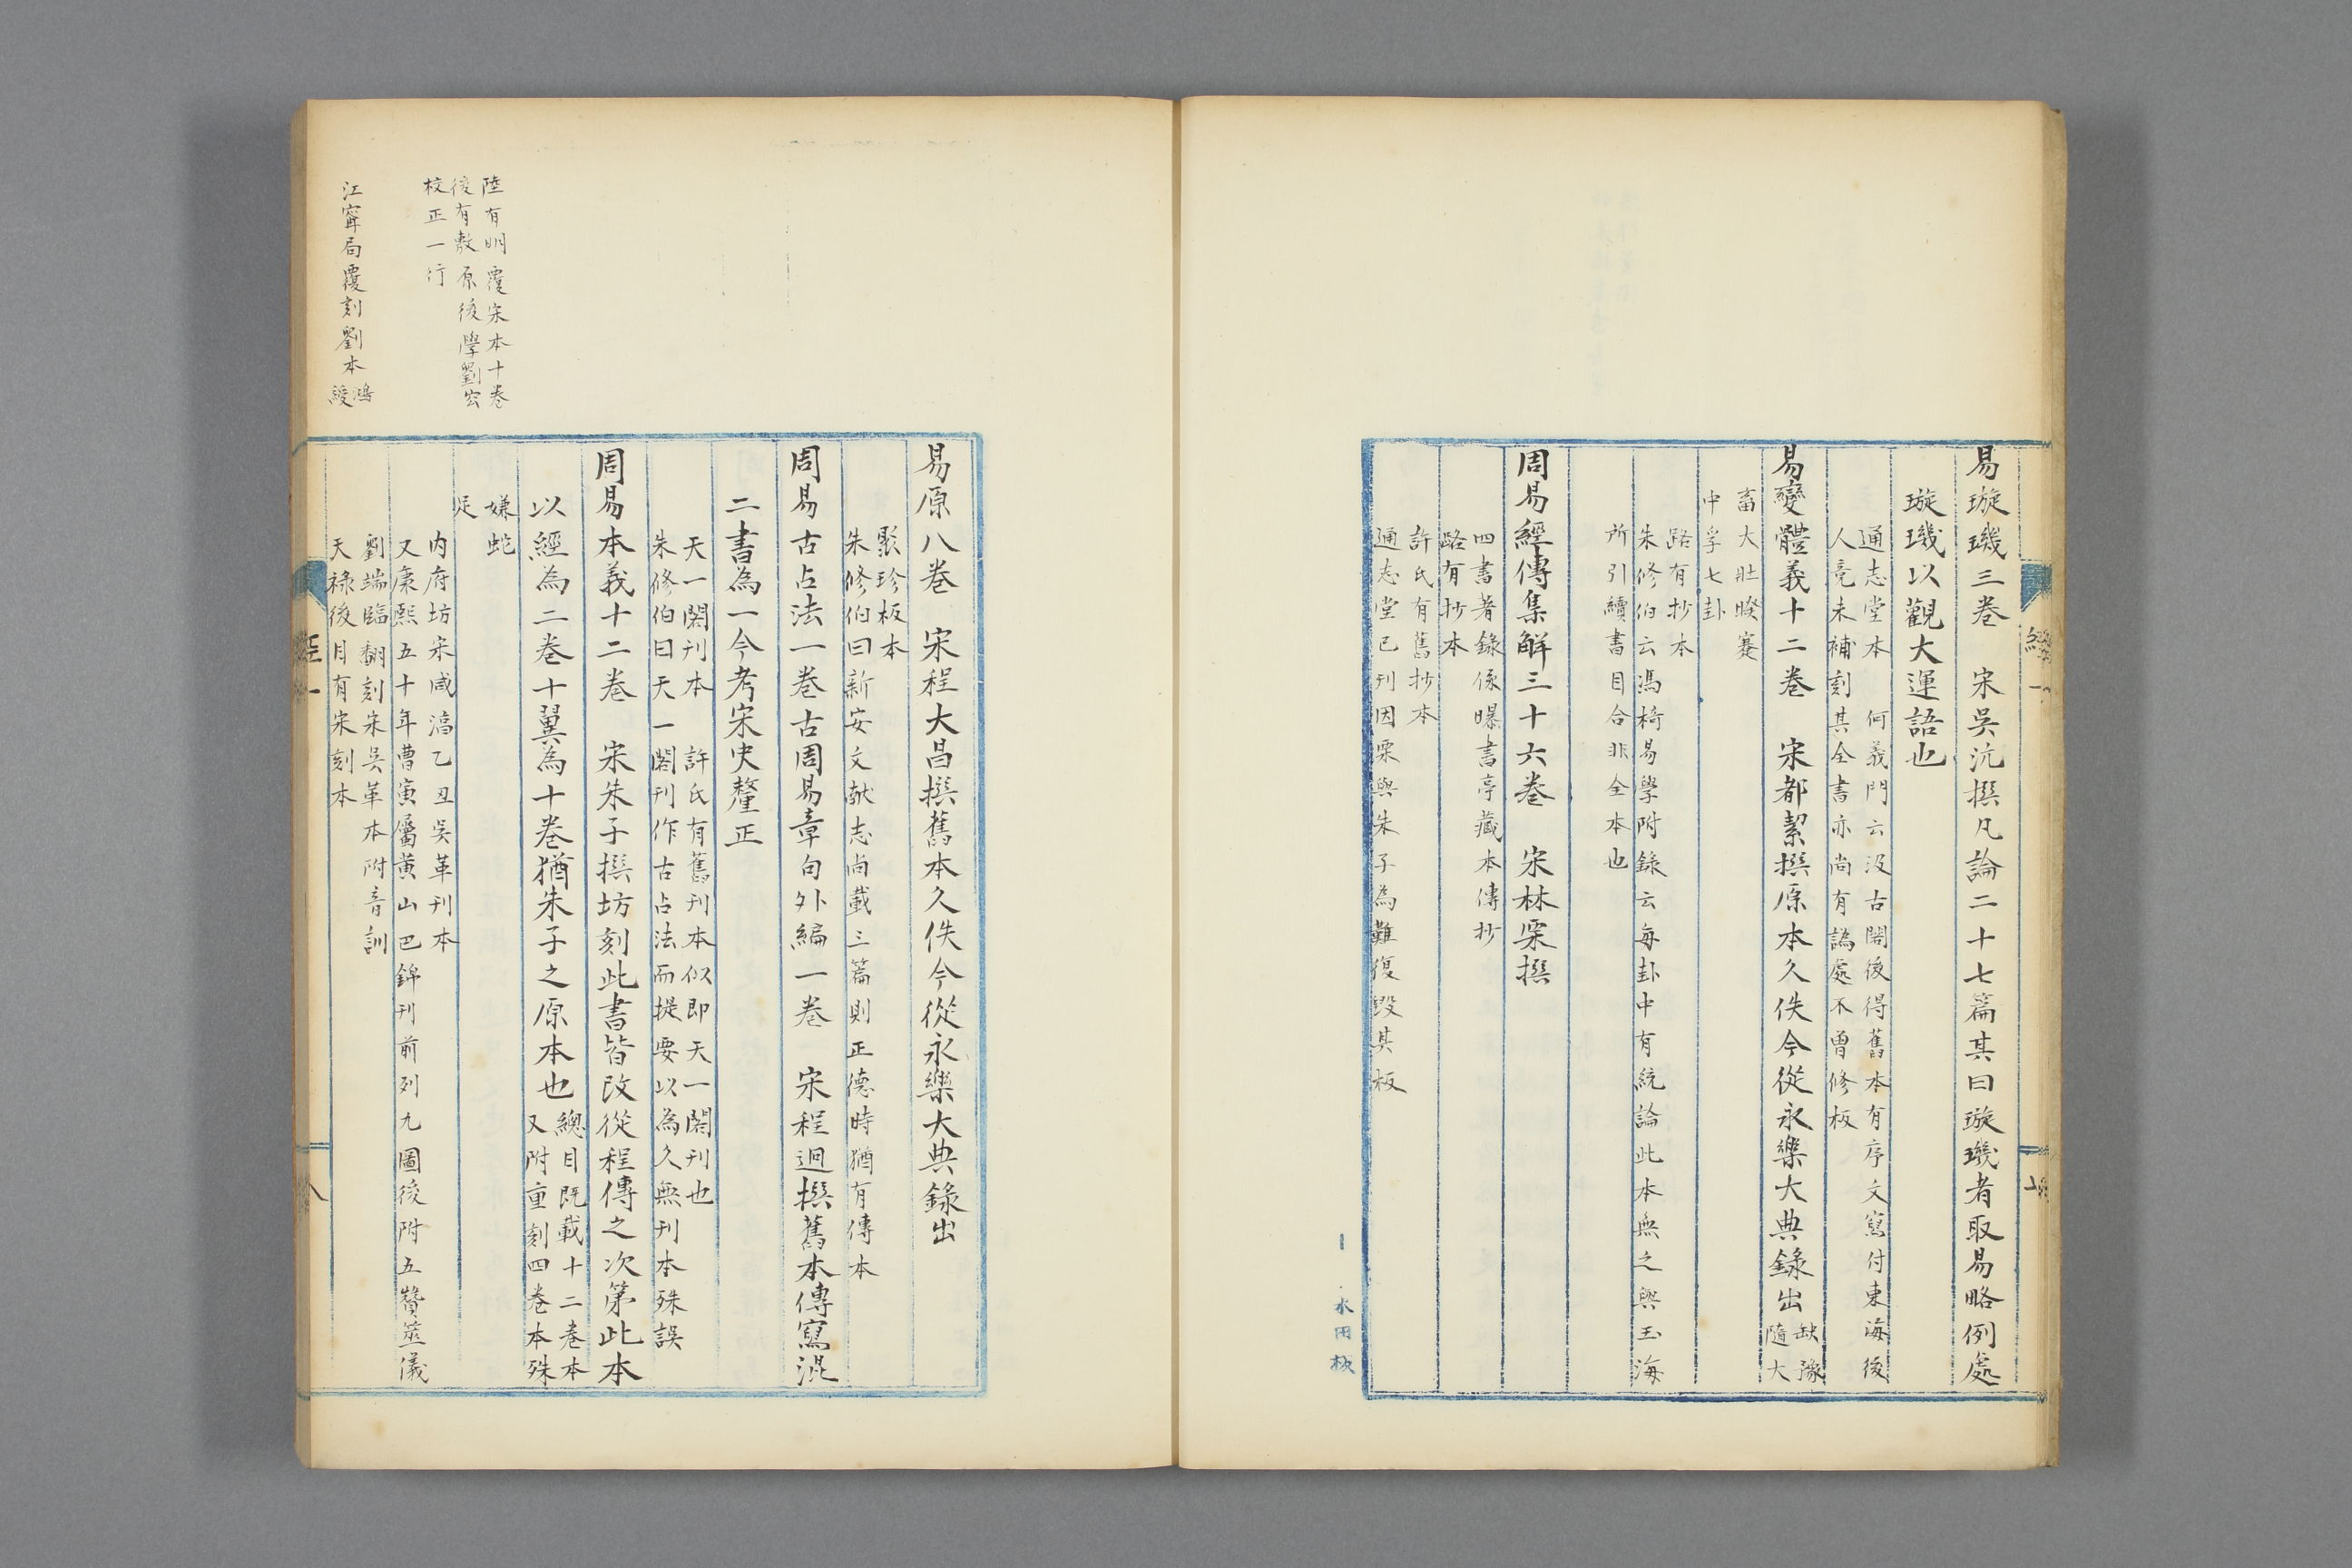 易璇璣三卷　宋吳沆撰凡論二十七篇其曰璇璣者取易略例處
璇璣以觀大運語也
通志堂本　何義門云汲古閣後得舊本有序文寫付東海後
人竟未補刻其全書亦尚有譌處不曾修板
易變體義十二卷　宋都絜撰原本久佚今從永樂大典錄出
缺豫
隨大
畜大壯睽蹇
中孚七卦
路有抄本
朱修伯云馮椅易學附錄云每卦中有統論此本無之與玉海
所引續書目合非全本也
周易經傳集解三十六卷　宋林栗撰
四書著錄係曝書亭藏本傳抄
路有抄本
許氏有舊抄本
通志堂已刊因栗與朱子為難復毀其板
經一
七
水田板
易原八卷　宋程大昌撰舊本久佚今從永樂大典錄出
聚珍板本
朱修伯曰新安文獻志尚載三篇則正德時猶有傳本
周易古占法一卷古周易章句外編一卷　宋程迥撰舊本傳寫混
二書為一今考宋史釐正
天一閣刊本　許氏有舊刊本似即天一閣刊也
朱修伯曰天一閣刊作古占法而提要以為久無刊本殊誤
周易本義十二卷　宋朱子撰坊刻此書皆改從程傳之次第此本
以經為二卷十翼為十卷猶朱子之原本也
總目既載十二卷本
又附重刻四卷本殊
嫌蛇
足
內府坊宋咸淳乙丑吳革刊本
又康熙五十年曹寅屬黃山巴錦刊前列九圖後附五贊筮儀
劉端臨翻刻宋吳革本附音訓
天祿後目有宋刻本
經一
八
陸有明覆宋本十卷
後有敷原後學劉宏
校正一行
江寧局覆刻劉本
鴻
綬